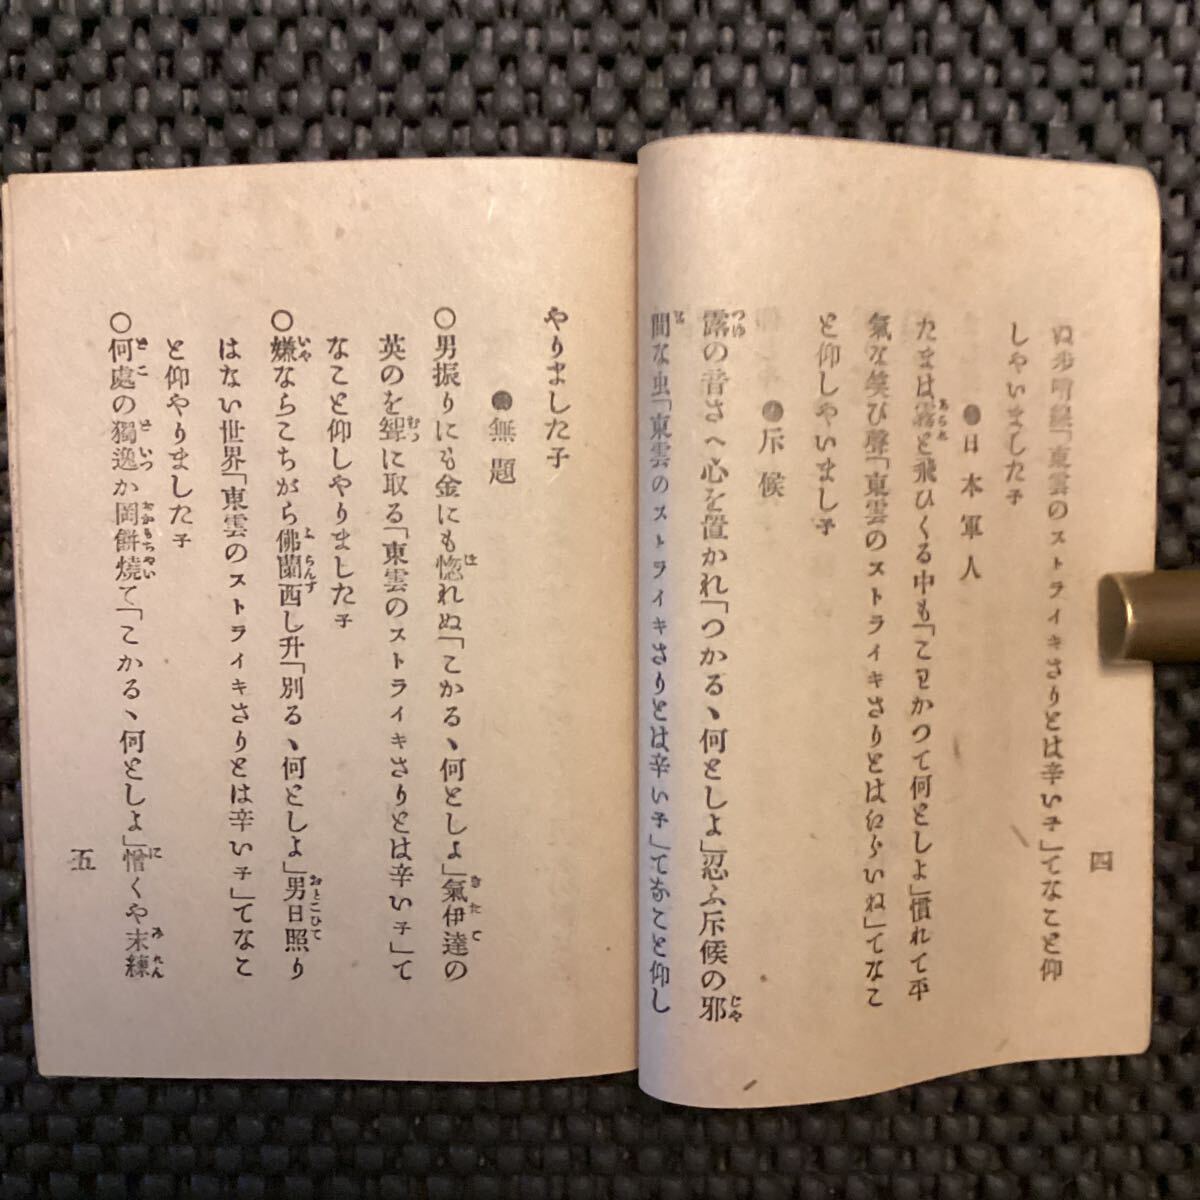 ぬ歩哨線「東雲のストライキさりとは辛い子」てなこと仰
しやいました子
●日本軍人
たまは霰と飛ひくる中も「こはかつて何としよ」慣れて平
氣な笑ひ聲「東雲のストライキさりとはつらいね」てなこ
と仰しやいまし子
●斥候
露の音さへ心を置かれ「つかる、何としよ」忍ふ斥候の邪
間な虫「東雲のストライキさりとは辛い子」てなこと仰し
四
やりました子
●無題
○男振りにも金にも惚れぬ「こかる、何としよ」氣伊達の
英のを聟に取る「東雲のストライキさりとは辛い子」て
なこと仰しやりました子
○嫌ならこちがら佛蘭西し升「別る、何としよ」男日照り
はない世界「東雲のストライキさりとは辛い子」てなこ
と仰やりました子
○何處の獨逸か岡餅燒て「こかる、何としよ」憎くや末練
五